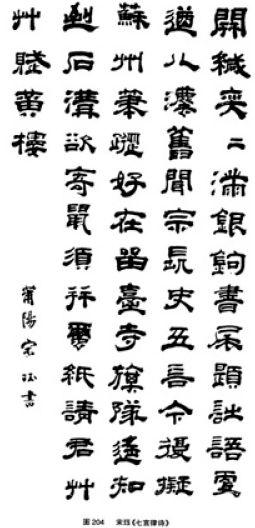 開緘奕二滿銀鉤書尾題詩語更
遒八灋舊聞宗長史五言今復擬
蘇州筆蹤好在留臺寺旗隊遙知
到石溝欲寄鼠須并繭紙請君艸
艸賦黃樓
莆陽宋珏書
圖204 宋珏《七言律诗》